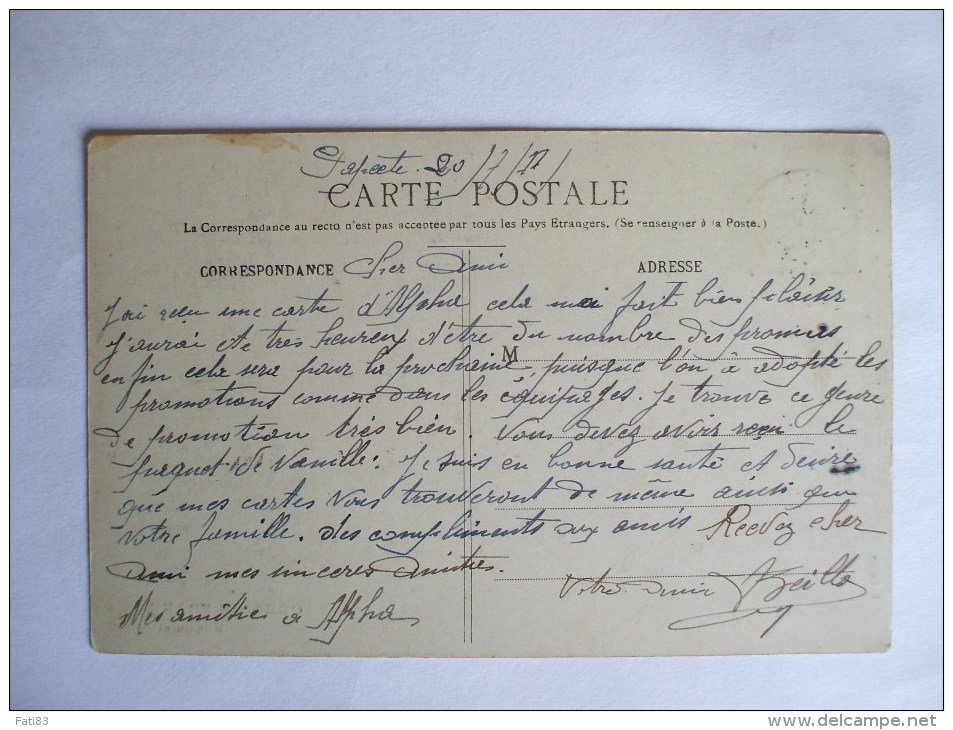 Papeete 20/7/11
CARTE POSTALE
La Correspondance au recto n'est pas acceptée par tous les Pays Etrangers. (Se renseigner à la Poste.)
CORRESPONDANCE Cher Ami ADRESSE
J'ai reçu une carte d'Alpha cela m'a fait bien plaisir
J'aurai ete très heureux d'être du nombre des promus
M
enfin cela sera pour la prochaine, puisque l'on a adopté les
promotions comme dans les équipages. Je trouve ce genre
de promotion très bien. Vous devez avoir reçu le
paquet de Vanille. Je suis en bonne santé et desire
que mes cartes vous trouveront de même ainsi que
votre famille. des compliments aux amis Recevez cher
ami mes sinceres amitiés.
Votre ami
Mes amitiés a Alpha
Fati83
www.delcampe.net